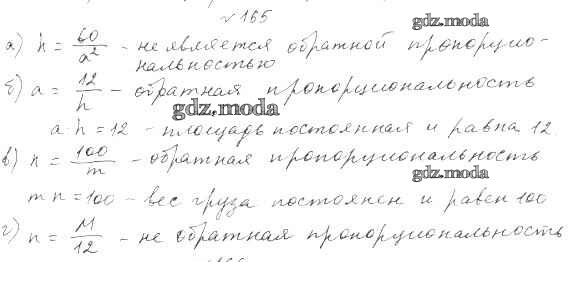 №165
gdz.moda
а) h = 60/a² - не является обратной пропорцио-
нальностью
б) a = 12/h - обратная пропорциональность
gdz.moda
a·h = 12 - площадь постоянная и равна 12
в) n = 100/m - обратная пропорциональность
gdz.moda
mn = 100 - вес груза постоянен и равен 100
г) n = M/12 - не обратная пропорциональность